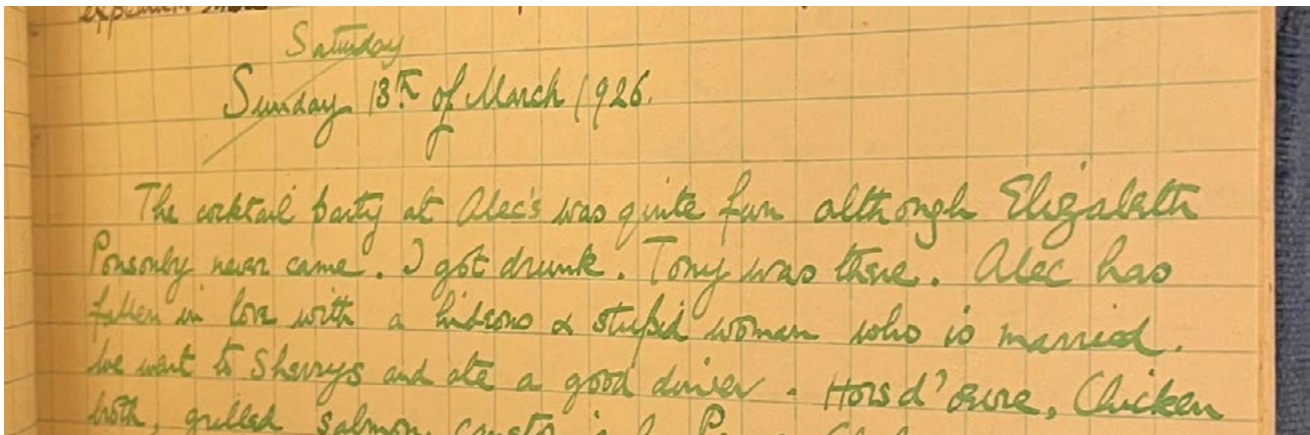 Saturday
Sunday 13th of March 1926.
The cocktail party at Alec's was quite fun although Elizabeth
Ponsonby never came. I got drunk. Tony was there. Alec has
fallen in love with a hideous & stupid woman who is married.
We went to Sherrys and ate a good dinner. Hors d'oeuvre, Chicken
broth, grilled salmon,